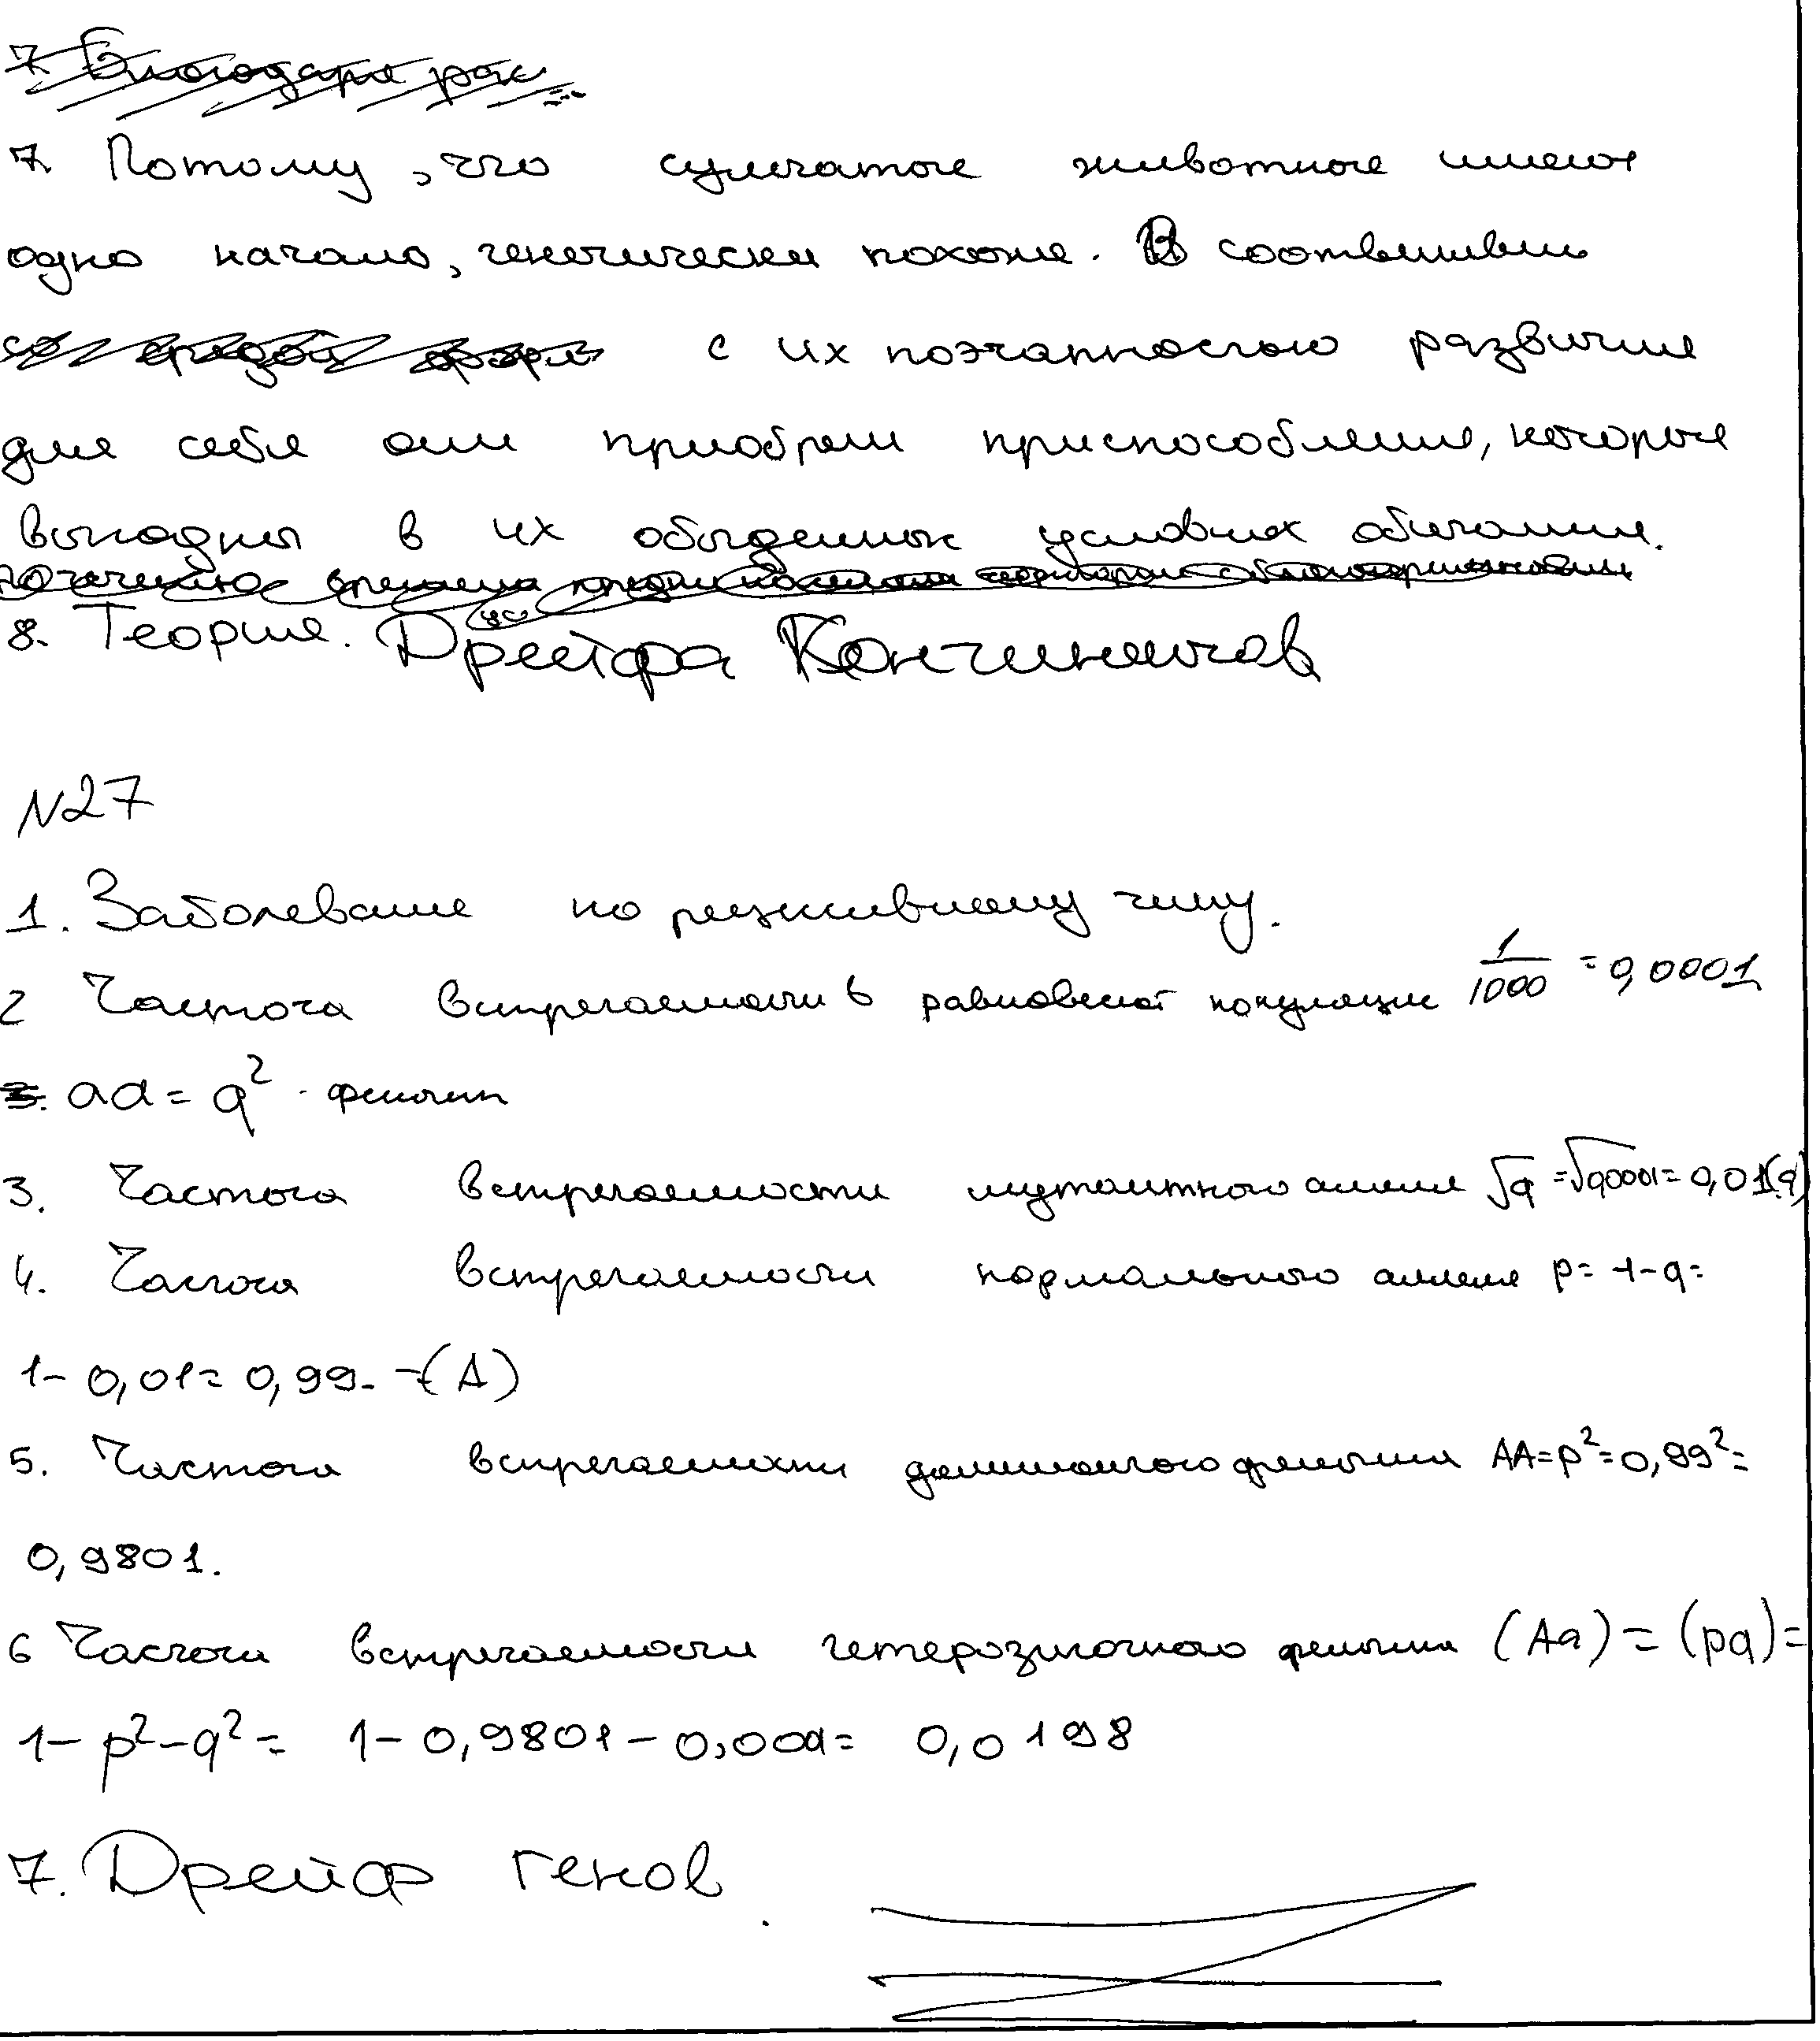 7. Благодаря рас
7. Потому, что сумчатые животные имеют
одно начало, генетически похожие. В соответствии
со средой форм с их поэтапностью развития
для себя они приобрели приспособления, которые
выгодны в их обыденных условиях обитания.
8. Теория. Дрейфа Континентов
N27
1. Заболевание по рецессивному типу.
2 Частота встречаемости в равновесной популяции 1/1000 = 0,0001
аа = q² - фенотип
3. Частота встречаемости мутантного аллеля √q = √0,0001 = 0,01(q)
4. Частота встречаемости нормального аллеля p = 1-q =
1- 0,01 = 0,99. -(А)
5. Частота встречаемости доминантного фенотипа АА=p²=0,99²=
0,9801.
6 Частота встречаемости гетерозиготного фенотипа (Аа) = (pq) =
1- p²-q² = 1- 0,9801 - 0,0001 = 0,0198
7. Дрейф генов.